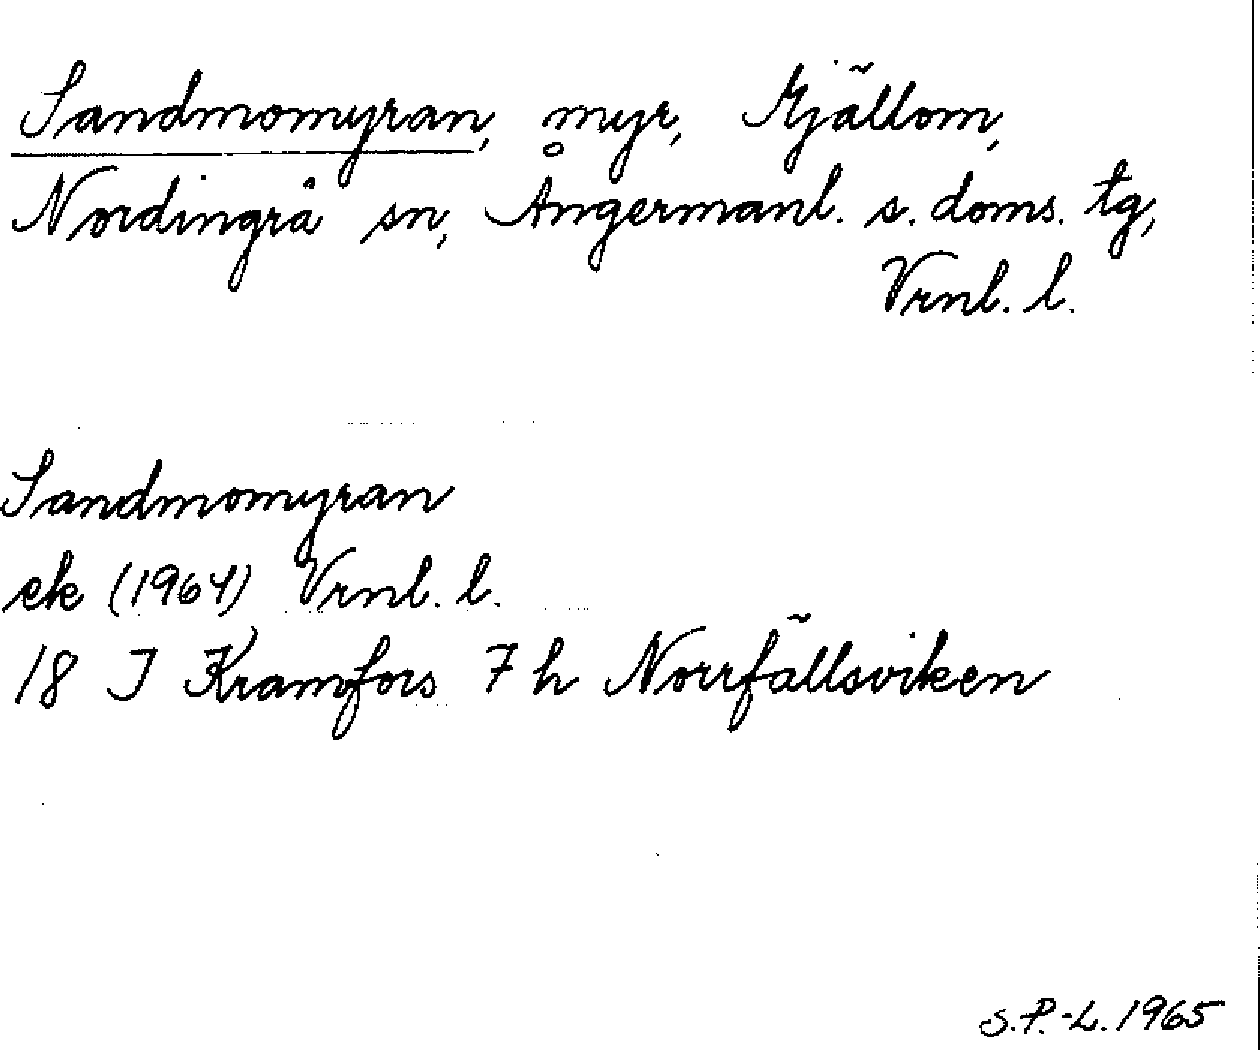 Sandmomyran, myr, Mjällom,
Nordingrå sn, Ångermanl. s. doms. tg,
Vrnl. l.
Sandmomyran
ek (1964) Vrnl. l.
18 I Kramfors 7 h Norrfällsviken
S.P.-L. 1965